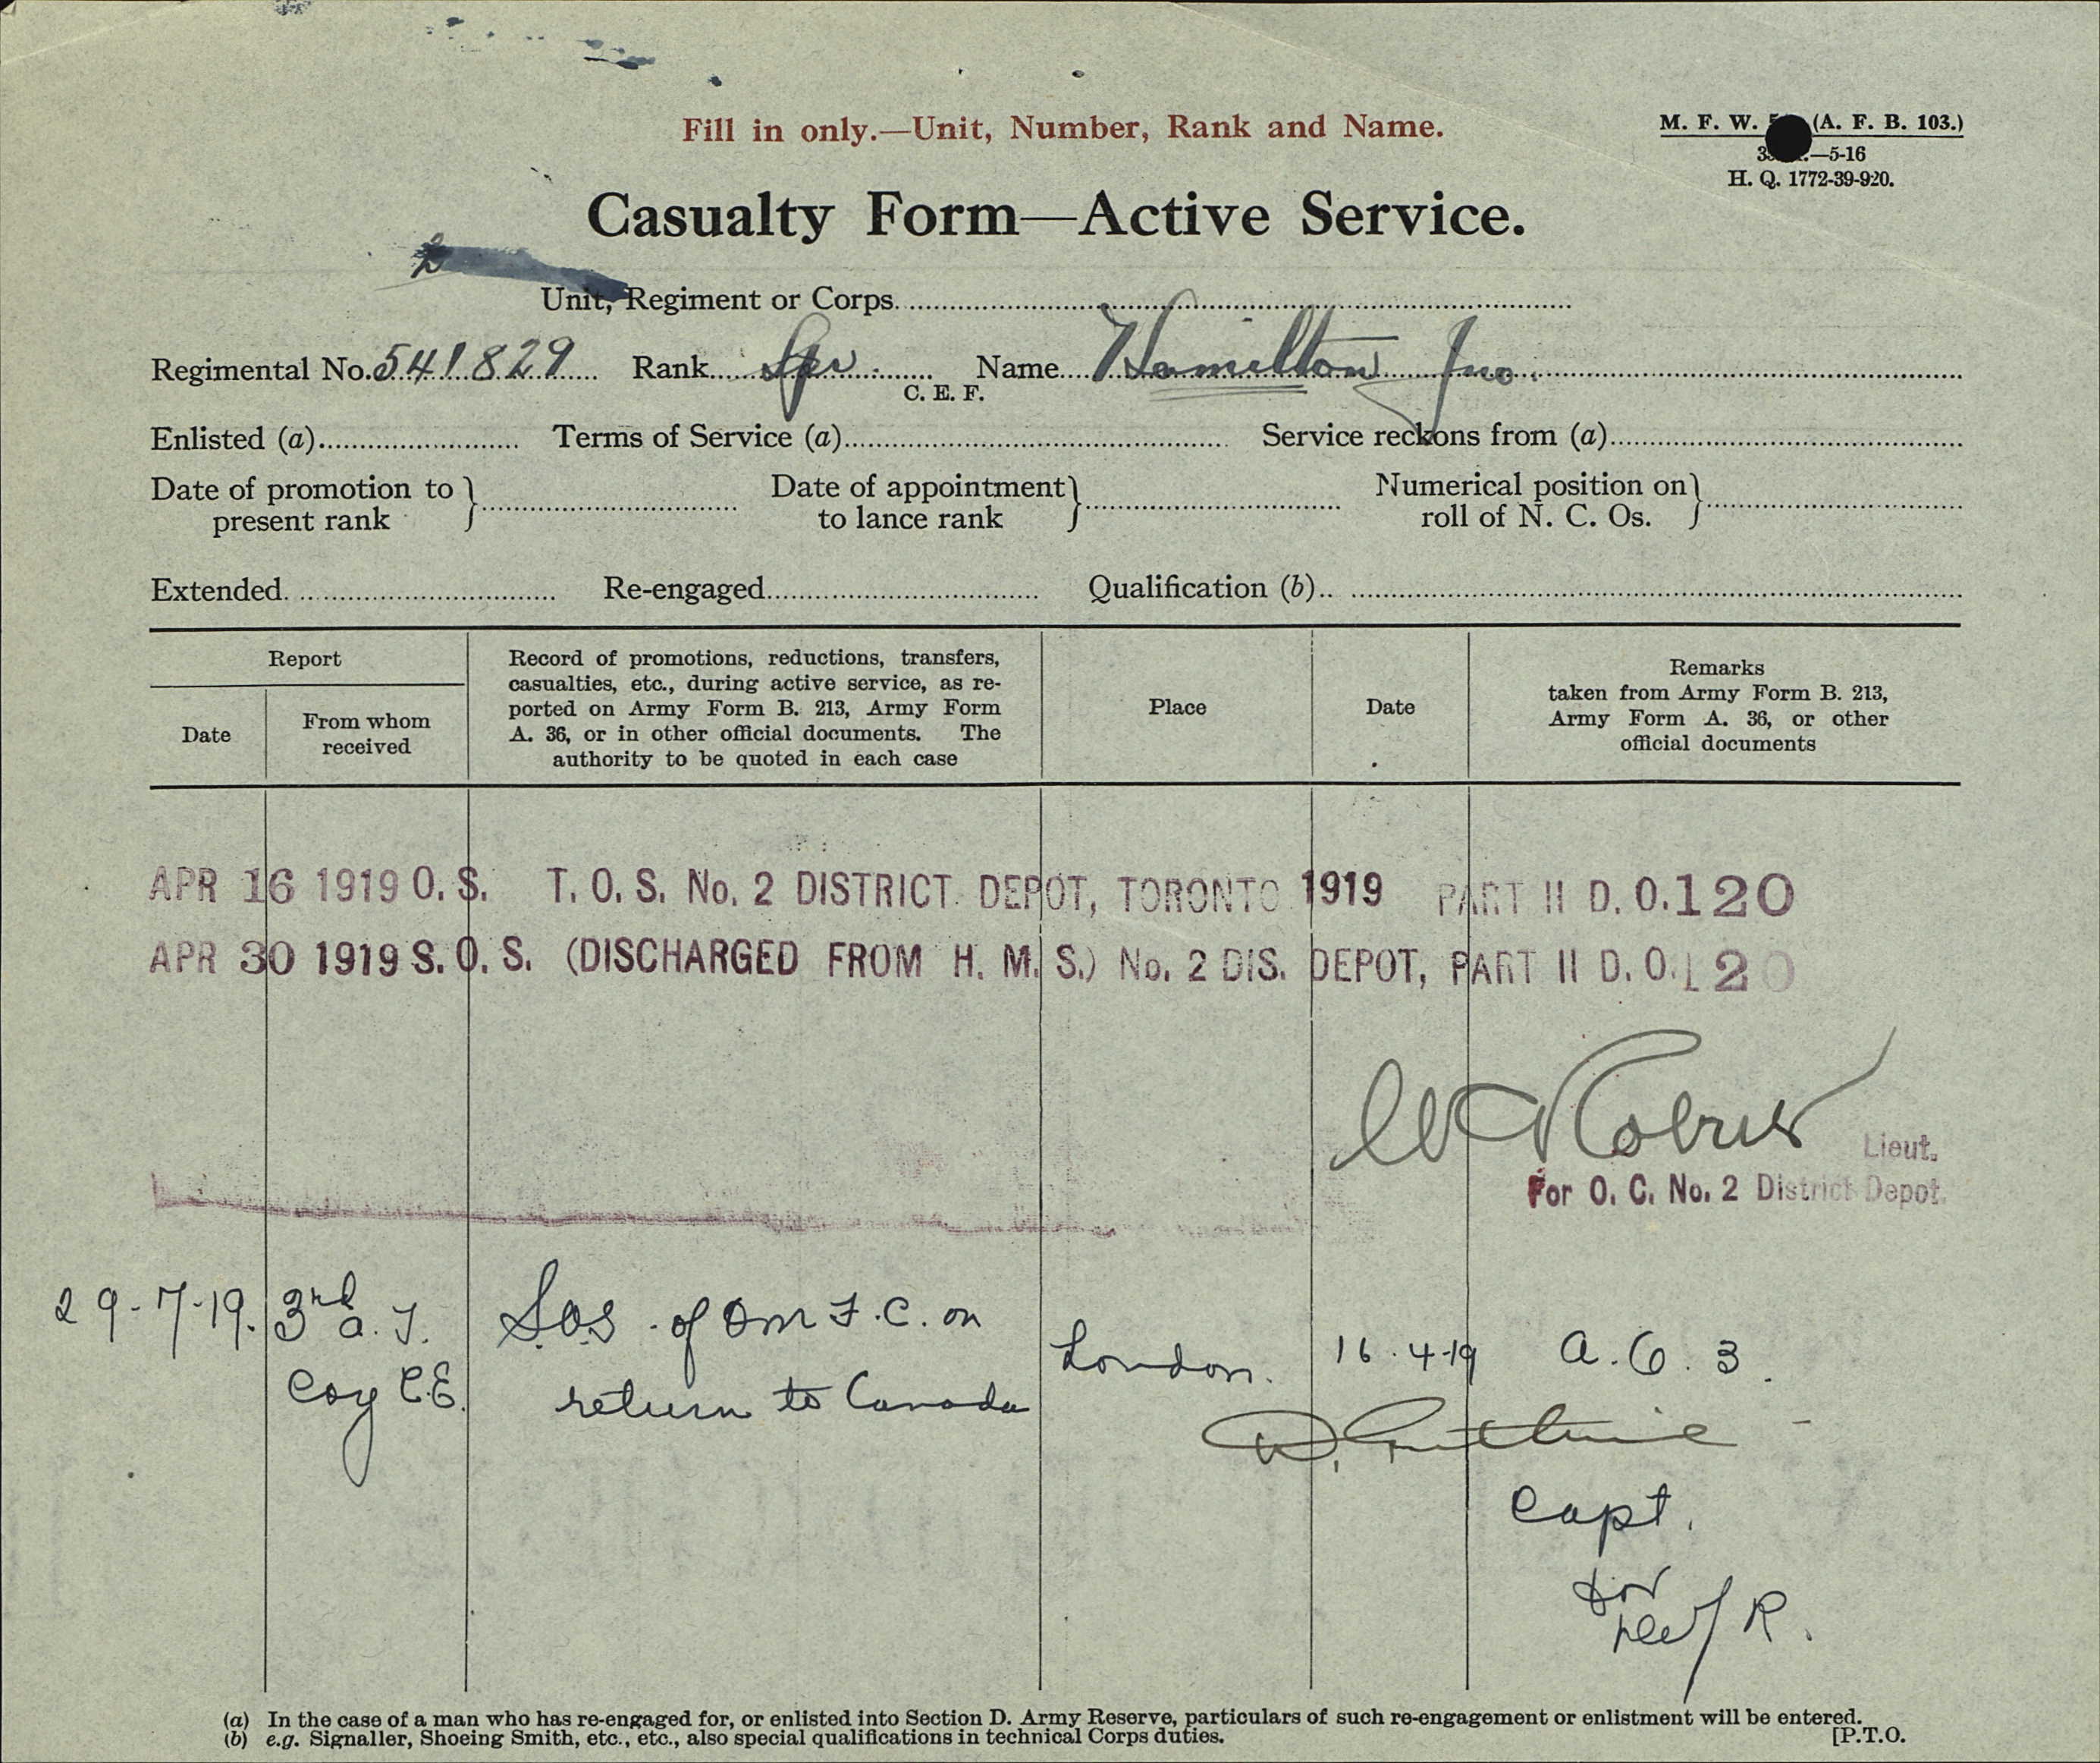 Fill in only.—Unit, Number, Rank and Name.
M. F. W. (A. F. B. 103.)
—5-16
H. Q. 1772-39-920.
Casualty Form—Active Service.
Unit, Regiment or Corps
Regimental No. 541829 Rank Spr. Name Hamilton Jno.
C. E. F.
Enlisted (a) Terms of Service (a) Service reckons from (a)
Date of promotion to present rank } Date of appointment to lance rank } Numerical position on roll of N. C. Os. }
Extended Re-engaged Qualification (b)
Report
Date
From whom received
Record of promotions, reductions, transfers,
casualties, etc., during active service, as re-
ported on Army Form B. 213, Army Form
A. 36, or in other official documents. The
authority to be quoted in each case
Place
Date
Remarks
taken from Army Form B. 213,
Army Form A. 36, or other
official documents
APR 16 1919 O. S. T. O. S. No. 2 DISTRICT DEPOT, TORONTO 1919 PART II D. O. 120
APR 30 1919 S. O. S. (DISCHARGED FROM H. M. S.) No. 2 DIS. DEPOT, PART II D. O. 120
Lieut.
For O. C. No. 2 District Depot.
29-7-19. 3rd A. T. SOS. of OMF.C. on London. 16.4-19 A.G. 3.
Coy C.E. return to Canada
D. Guthrie
Capt.
for
R.
(a) In the case of a man who has re-engaged for, or enlisted into Section D. Army Reserve, particulars of such re-engagement or enlistment will be entered.
(b) e.g. Signaller, Shoeing Smith, etc., etc., also special qualifications in technical Corps duties. [P.T.O.